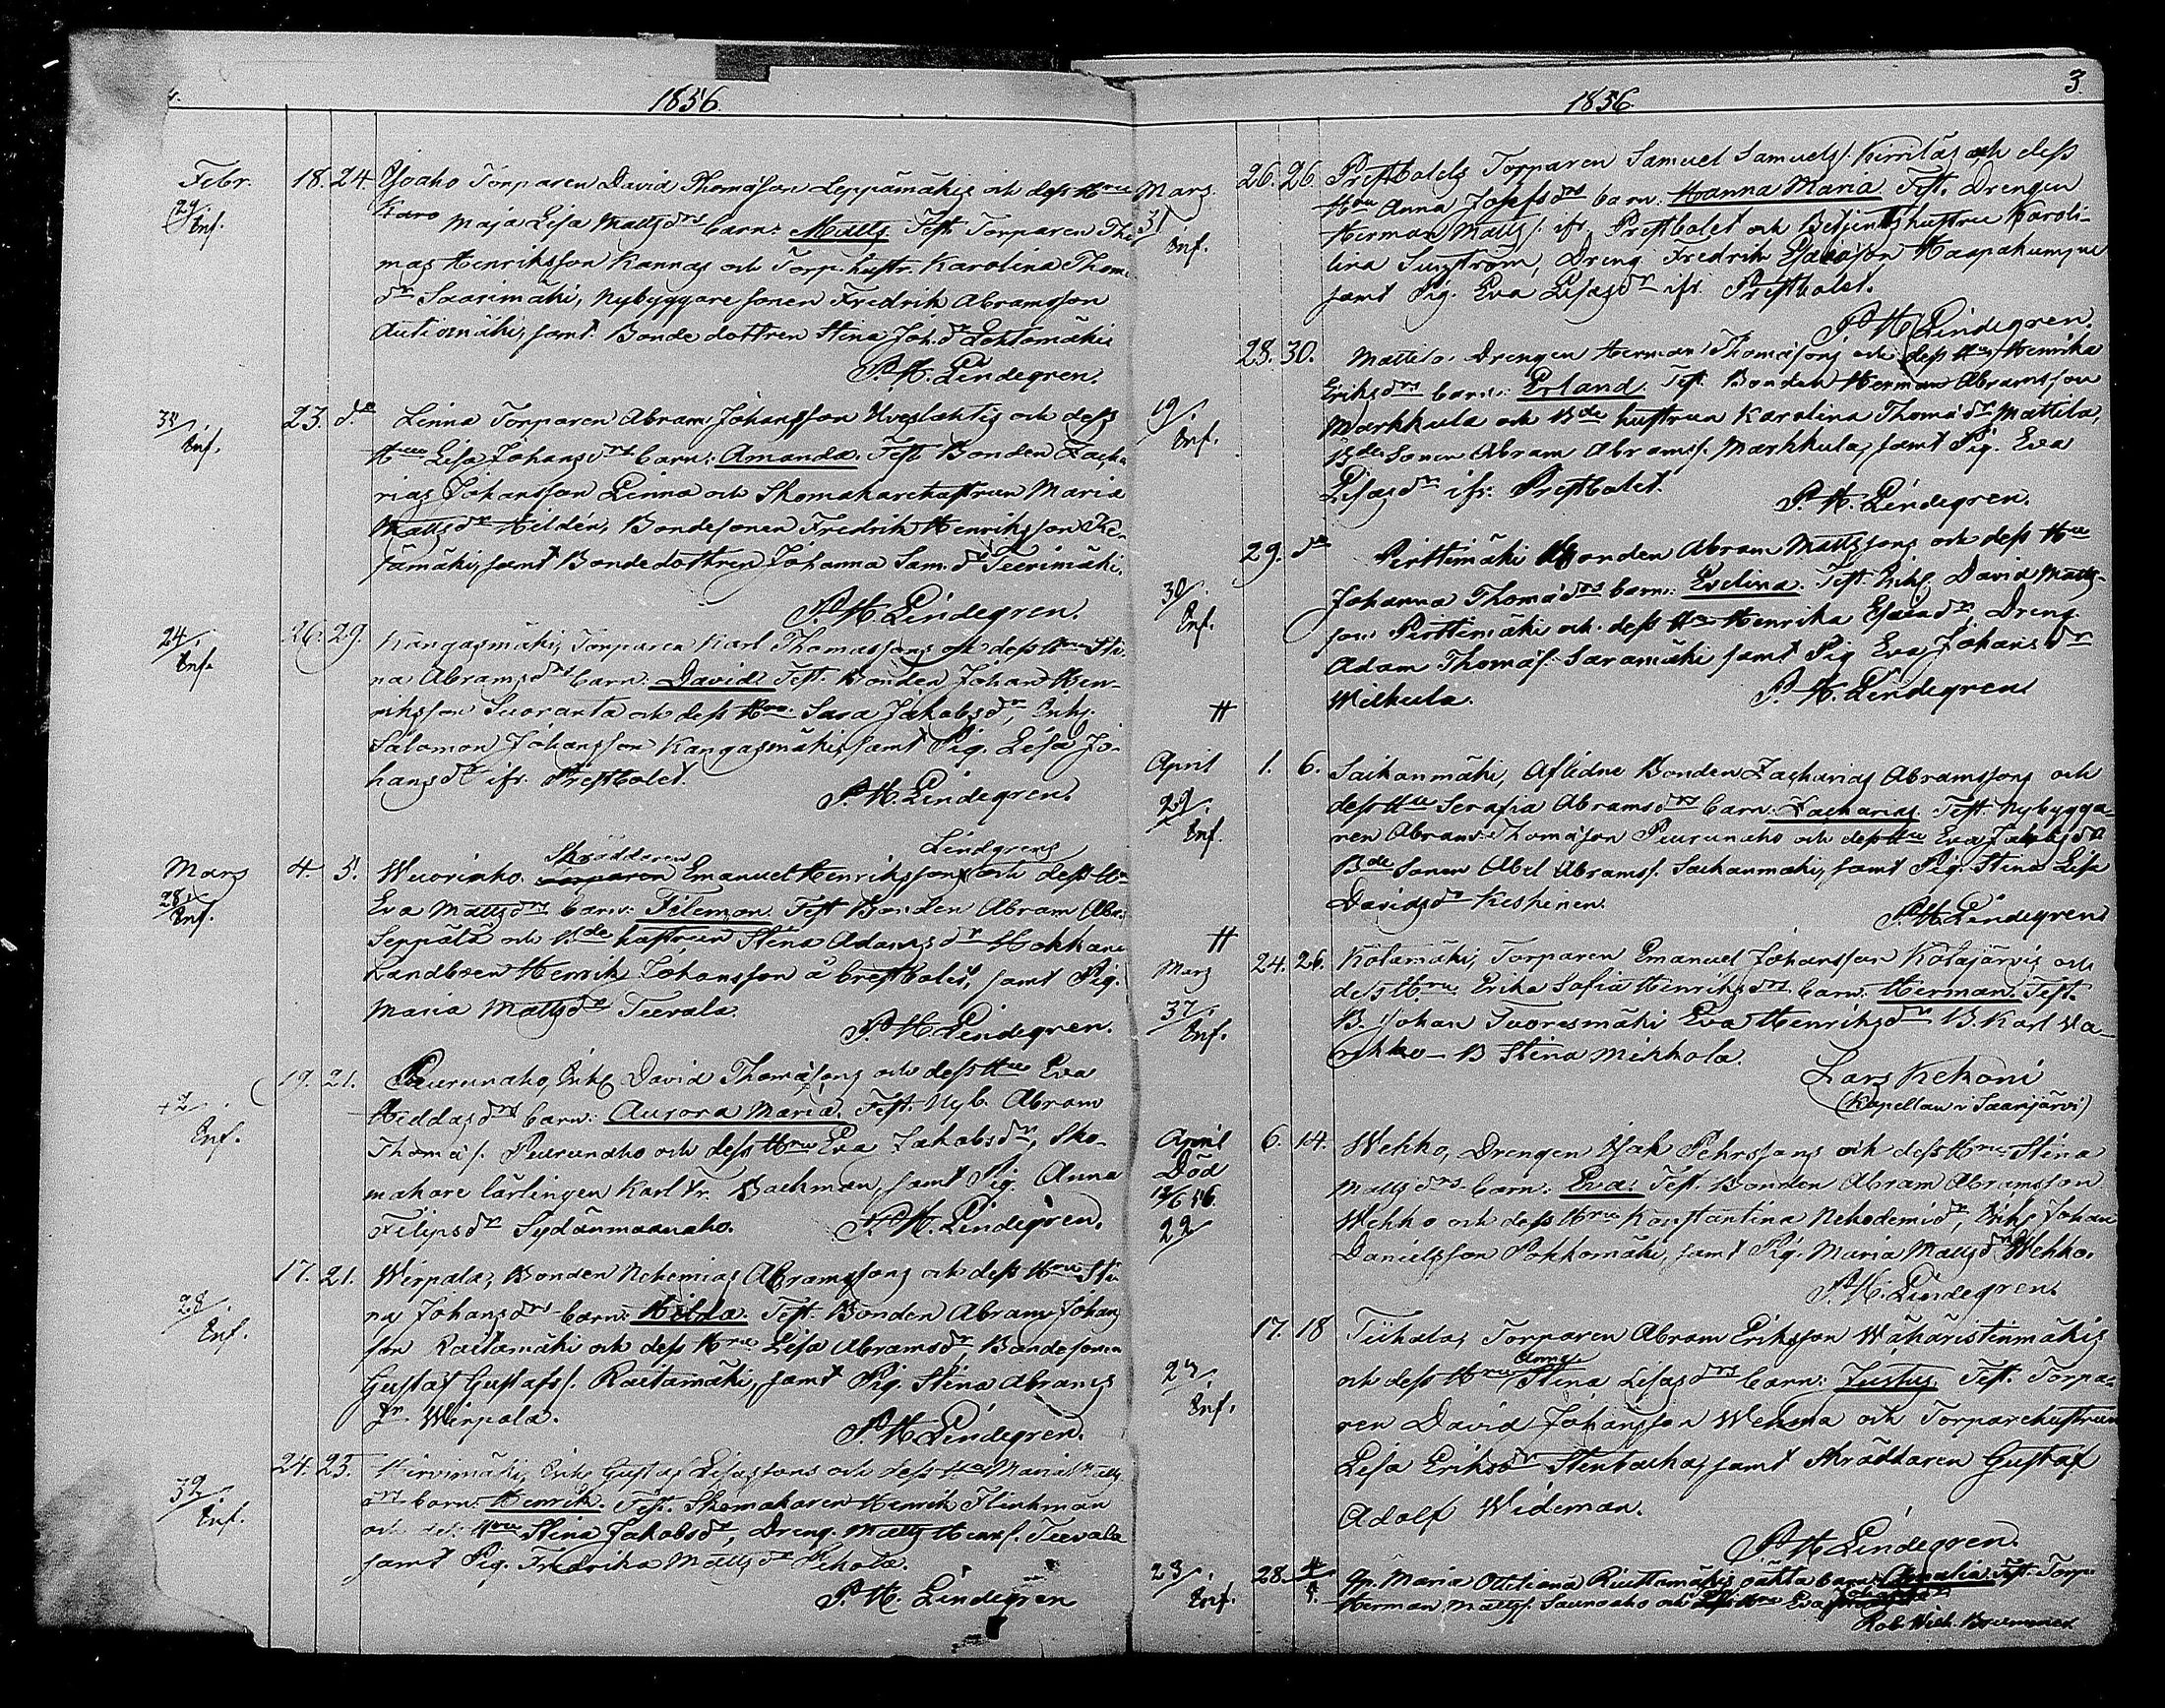 1856.
Febr. 18. 24. Yoaho Torparen David Thomasson Leppämäkis och dess Hru
29. Enf. Maja Lisa Matts drs barn: Matts Test. Torparen Tho
mas Henriksson Kannas och Torp. hustr. Karolina Thom.
dr Saarimäki, Nybyggare sonen Fredrik Abramsson
Autiomäki, samt Bonde dottren Stina Joh. dr Lehtomäki
P. H. Lindegren.
Enf. 23. do Linna Torparen Abram Johansson och dess
Hru Lisa Johans drs barn: Amanda. Test. Bonden Zacha
rias Johansson Linna och Skomakarehustrun Maria
Matts dr Hildén, Bondesonen Fredrik Henriksson
mäki, samt Bondedottren Johanna Sam. dr Teerimäki.
P. H. Lindegren.
24/. Enf. 26. 29. Kangasmäki, Torparen Karl Thomassons och dess Hru Sti
na Abrams drs barn: David. Test. Bonden Johan Hen-
riksson Suoranta och dess Hru Sara Jakobs dr, Enkl.
Salomon Johansson Kangasmäki, samt Pig. Lisa Jo-
hans dr ifr. Prestbolet.
P. H. Lindegren.
Skrädderen Lindgrens
Mars 4. 5. Wuorinho. Torparen Emanuel Henrikssons och dess Hru
28 Enf. Eva Matts drs barn: Filemon. Test. Bonden Abram Abr.
Seppälä och Bde hustrun Stina Adams dr Hokkane
Landboen Henrik Johansson å Prestbolet, samt Pig.
Maria Matts dr Teerala.
P. H. Lindegren.
19. 21. Puurunaho, Enkl David Thomassons och dess Hru Eva
Heddas drs barn: Aurora Maria. Test. Nyb. Abram
Enf. Thomass. Puurunaho och dess Hru Eva Jakobs dr, Sko-
makare lärlingen Karl Fr. Backman, samt Pig. Anna
Filips dr Sydänmaanaho. P. H. Lindegren.
17. 21. Wirpala, Bonden Nehemias Abramssons och dess Hru Sti
28/. Enf. na Johans drs barn: Hilda. Test. Bonden Abram Johans
son Raitamäki och dess Hru Lisa Abrams dr, Bondesonen
Gustaf Gustafss. Raitamäki, samt Pig. Stina Abrams
dr. Wirpala.
P. H. Lindegren.
24. 25. Hirvimäki, Enkl Gustaf Lisassons och dess Hru Maria Matts
Enf. drs barn: Henrik. Test. Skomakaren Henrik Flinkman
och dess Hru Stina Jakobs dr, Dreng. Matts Henrs. Teerala
samt Pig. Fredrika Matts dr Pekola.
P. H. Lindegren
1856. 3.
Mars. 26. 26. Prestbolets Torparen Samuel Samuelss. och dess
31 Enf. Hru Anna Josefs drs barn: Hanna Maria Test. Drengen
Herman Matts s. ifr. Prestbolet och Betjentshustru Karoli-
lina Sunström, Dreng Fredrik Esaiasson
samt Pig. Eva Lisas dr ifr. Prestbolet.
P. H. Lindegren.
28. 30. Mattila Drengen Herman Thomassons och dess Hru Henrika
Eriks drs barn: Erland. Test. Bonden Herman Abramsson
19/. Enf. Markkula och Bde hustrun Karolina Thoma dr Mattila,
Bde Sonen Abram Abramss. Markkula, samt Pig. Eva
Lisas dr ifr. Prestbolet.
P. H. Lindegren.
29. do Pirttimäki Bonden Abram Mattssons och dess Hru
30/. Enf. Johanna Thoma drs barn: Evelina. Test. Enkl. David Matts-
son Pirttimäki och dess Hru Henrika Esaias dr, Dreng
Adam Thomass. Saramäki samt Pig Eva Johans dr
Wilkula. P. H. Lindegren
April 1. 6. Saikanmäki, Aflidne Bonden Zacharias Abramssons och
29. Enf. dess Hru Serafia Abrams drs barn: Zacharias. Test. Nybygga-
ren Abram Thomasson Puurunaho och dess Hru Eva Jakobs dr
Bde Sonen Abel Abramss. Saikanmäki, samt Pig. Stina Lisa
Davids dr Keskinen.
P. H. Lindegren
Mars 24. 26. Kolamäki, Torparen Emanuel Johansson Kolajärvis och
dess Hru Erika Sofia Henriks drs barn: Herman. Test.
37/. Enf. B. Johan Tuoresmäki Eva Henriks dr B. Karl
B Stina Mikkola
Lars Kekoni
(Kapellan i Saarijärvi)
April 6. 14. Wehko, Drengen Isak Pehrssons och dess Hru Stina
Död Matts drs barn: Eva. Test. Bonden Abram Abramsson
12/6 56. Wehko och dess Hru Konstantina Nekodemi dr, Enkl Johan
22 Danielsson Pokkomäki, samt Pig. Maria Matts dr Wehko.
P. H. Lindegren.
17. 18 Tiihala, Torparen Abram Eriksson Wähäristinmäkis
Anna
och dess Hru Stina Lisas drs barn: Justus. Test. Torpa-
Enf. ren David Johansson Wehma och Torparehustrun
Lisa Eriks dr Stenbacka, samt Skräddaren Gustaf
Adolf Wideman.
P. H. Lindegren.
23/. Enf. 28. Qp. Maria Ottiliana oäkta barn Amalia. Test. Torp.
Herman Matts s. Saunoaho och Eva
Rob. Wilh. Brummer